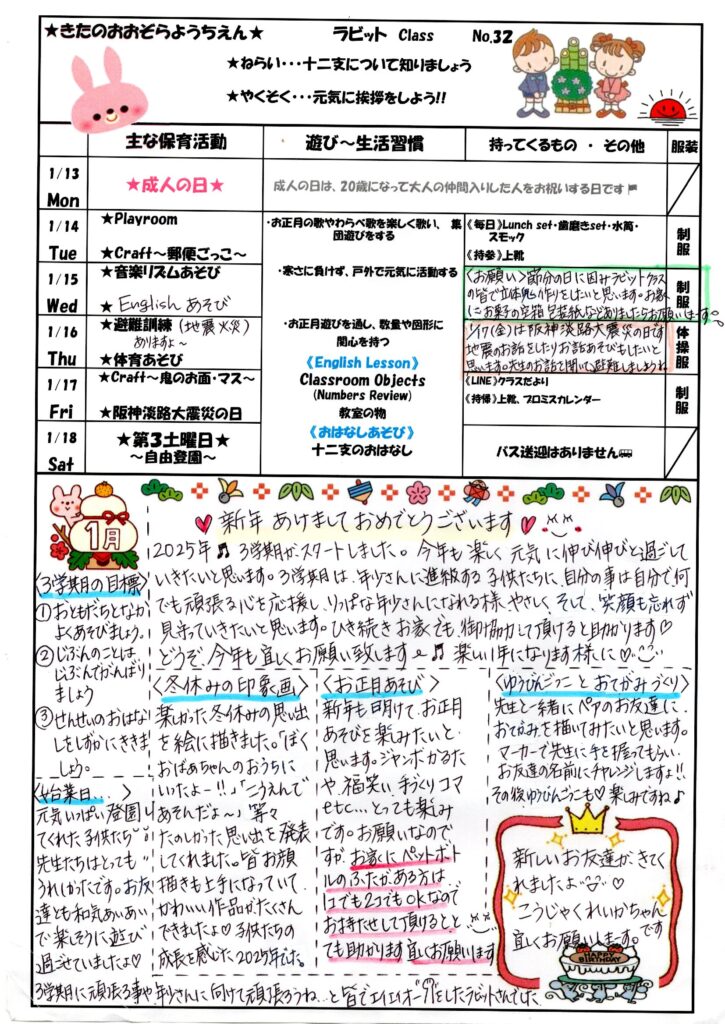 ★きたのおおぞらようちえん★ ラビット Class No.32
★ねらい・・・十二支について知りましょう
★やくそく・・・元気に挨拶をしよう!!
主な保育活動 遊び～生活習慣 持ってくるもの ・ その他 服装
1/13
Mon
★成人の日★
成人の日は、20歳になって大人の仲間入りした人をお祝いする日です
1/14
Tue
★Playroom
★Craft～郵便ごっこ～
・お正月の歌やわらべ歌を楽しく歌い、 集
団遊びをする
《毎日》Lunch set・歯磨きset・水筒・
スモック
《持参》上靴
制服
1/15
Wed
★音楽リズムあそび
★ Englishあそび
・寒さに負けず、戸外で元気に活動する
〈お願い〉節分の日に因みラビットクラス
の皆で立体鬼作りをしたいと思います。お家
にお菓子の空箱、包装紙などありましたらお願いします。
制服
1/16
Thu
★避難訓練(地震火災)
ありますよ～
★体育あそび
・お正月遊びを通し、数量や図形に
関心を持つ
《English Lesson》
1/17(金)は阪神淡路大震災の日です
地震のお話をしたりお話あそびもしたいと
思います。先生のお話を聞いて避難しましょうね
体操服
1/17
Fri
★Craft～鬼のお面・マス～
★阪神淡路大震災の日
Classroom Objects
(Numbers Review)
教室の物
《LINE》クラスだより
《持帰》上靴、プロミスカレンダー
制服
1/18
Sat
★第3土曜日★
～自由登園～
《おはなしあそび》
十二支のおはなし
バス送迎はありません
1月
新年 あけまして おめでとうございます
2025年♬ 3学期がスタートしました。今年も楽しく元気に伸び伸びと過ごして
いきたいと思います。3学期は、年少さんに進級する子供たちに、自分の事は自分で何
でも頑張る心を応援し、りっぱな年少さんになれる様、やさしく、そして、笑顔も忘れず
見守っていきたいと思います。ひき続きお家でも、御協力して頂けると助かります♡
どうぞ、今年も宜しくお願い致します〜♬ 楽しい1年になります様に♡
〈3学期の目標〉
①おともだちとなか
よくあそびましょう。
②じぶんのことは
じぶんでがんばり
ましょう
③せんせいのおはなし
をしずかにききま
しょう。
〈始業日...〉
元気いっぱい登園
してくれた子供たち
先生たちはとっても
うれしかったです。お友
達とも和気あいあい
で楽しそうに遊び
過ごせていましたよ♡
〈冬休みの印象画〉
楽しかった冬休みの思い出
を絵に描きました。「ぼく
おばあちゃんのおうちに
いたよー!!」「こうえんで
あそんだよ～」等々
たのしかった思い出を発表
してくれました。皆お顔
描きも上手になっていて、
かわいい作品がたくさん
できましたよ♡子供たちの
成長を感じた2025年でした。
〈お正月あそび〉
新年も明けて、お正月
あそびを楽しみたいと
思います。ジャンボかるた
や、福笑い、手づくりコマ
etc...とっても楽しみ
です。お願いなので
すが、お家にペットボト
ルのふたがある方は
1コでも2コでもOKなので
お持たせして頂けるとと
ても助かります。宜しくお願います
〈ゆうびんごっことおてがみづくり〉
先生と一緒にペアのお友達に、
おてがみを描いてみたいと思います。
マーカーで先生に手を握ってもらい、
お友達の名前にチャレンジしますよ!!
その後ゆうびんごっこも♡楽しみですね♪
新しいお友達がきてく
れましたよ♡
こうじゃくれいかちゃん
です
宜しくお願いします。
HAPPY BIRTHDAY
3学期に頑張る事や年少さんに向けて頑張ろうね...と皆でエイエイオーをしたラビットさんでした。